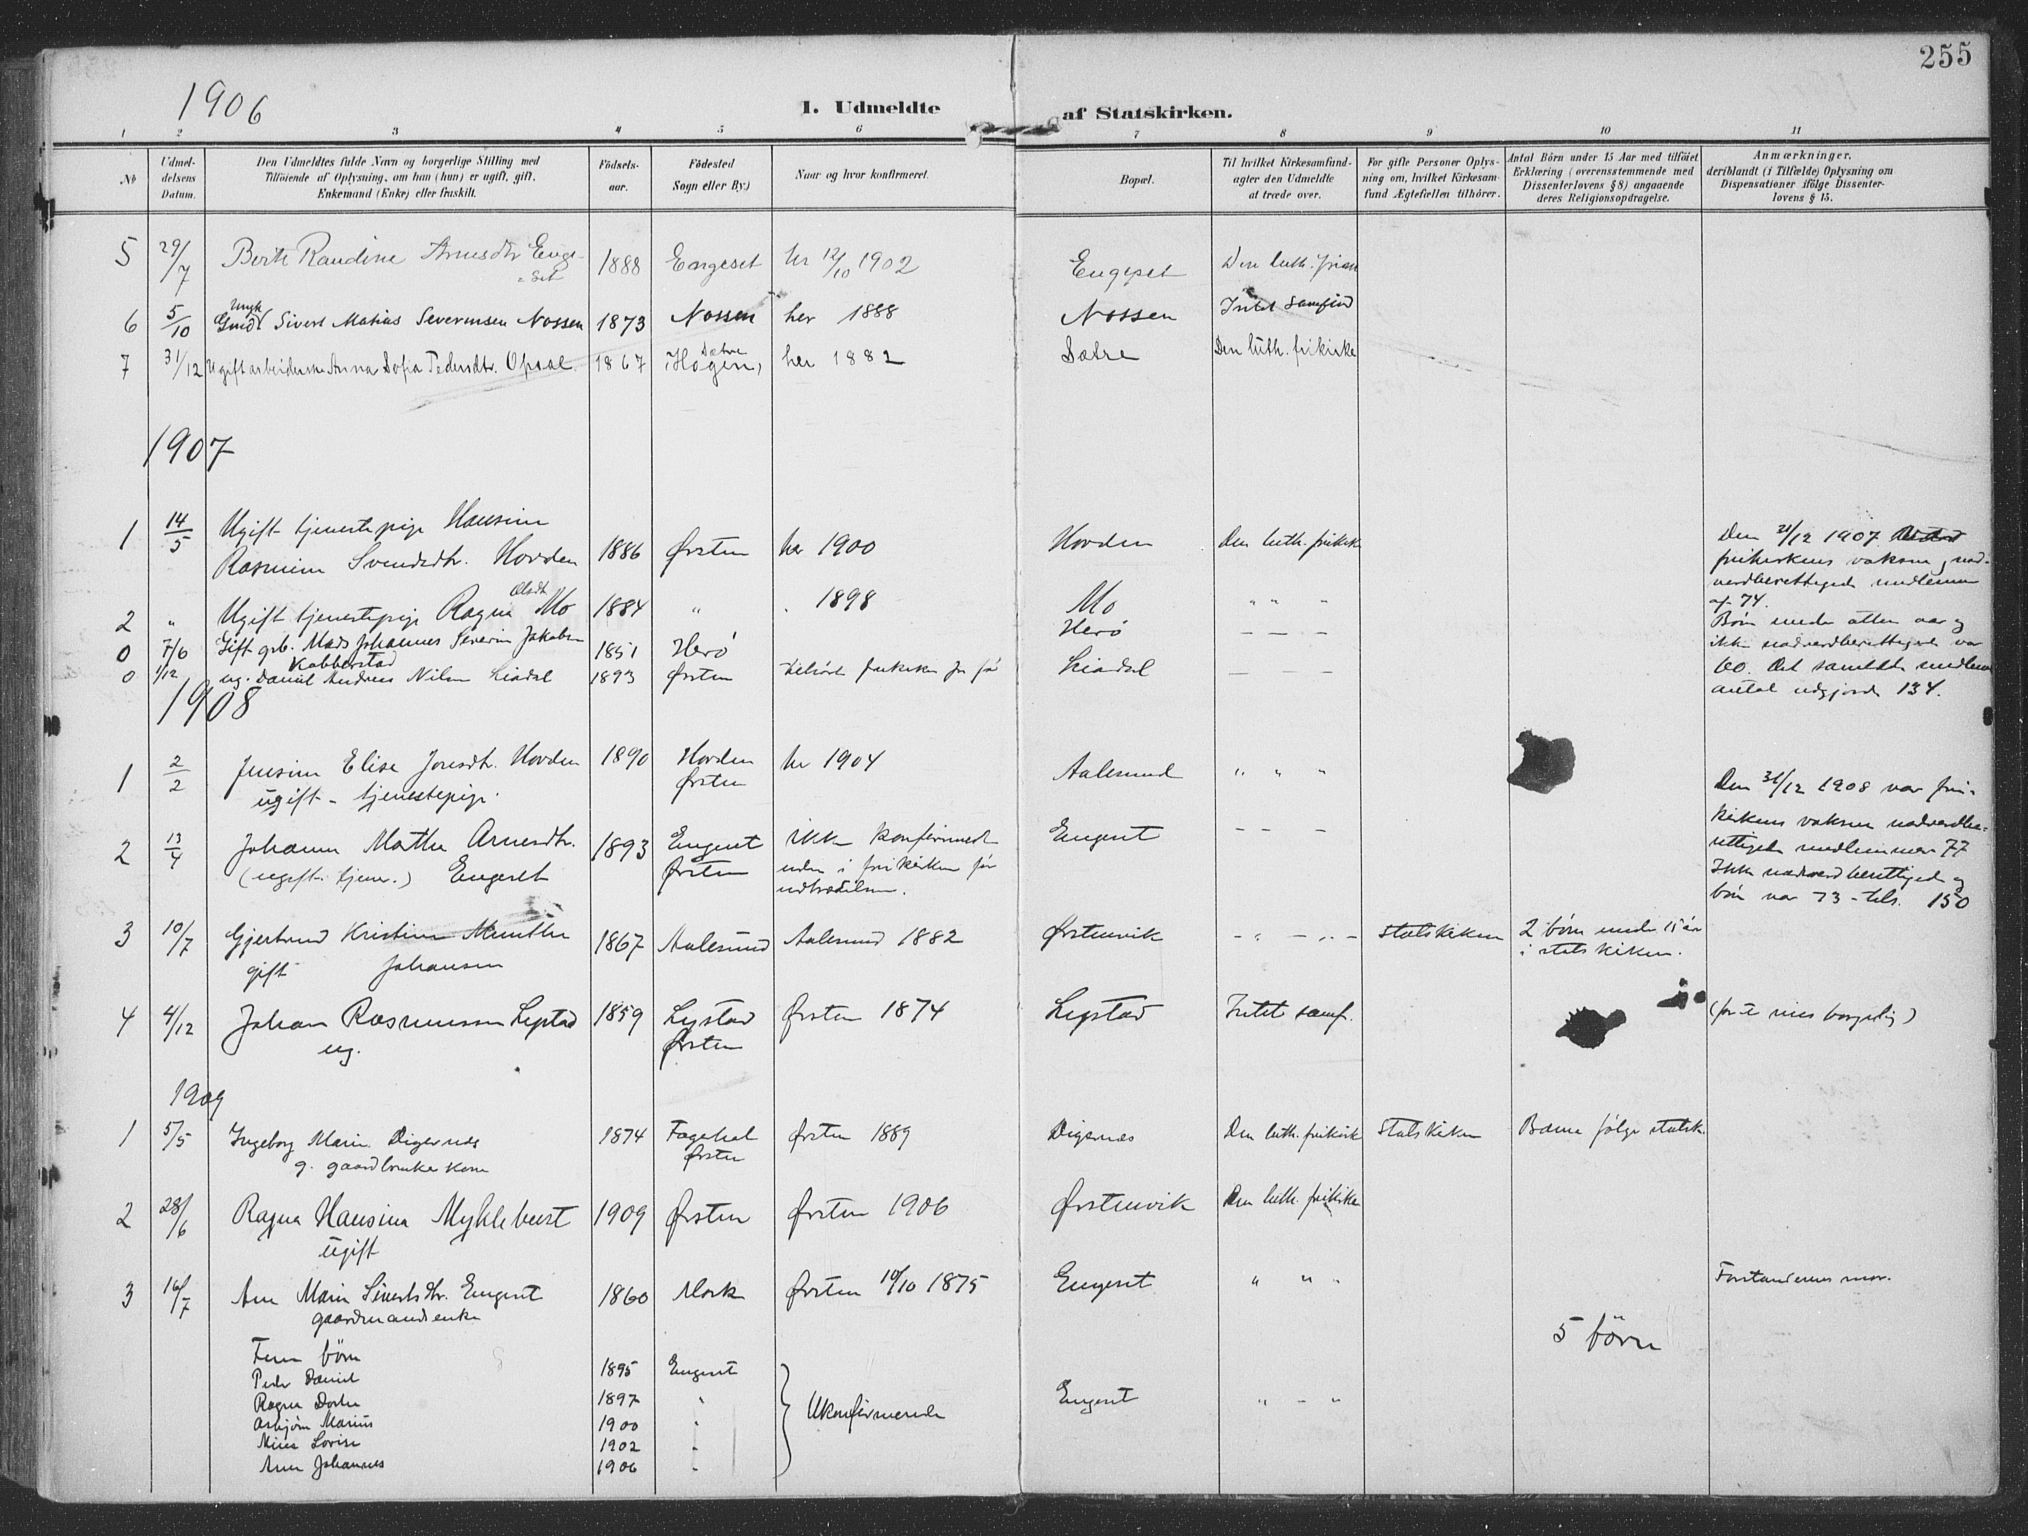 255
1906
I. Udmeldte af Statskirken.
1 2 3 4 5 6 7 8 9 10 11
No
Udmel-
delsens
Datum.
Den Udmeldtes fulde Navn og borgerlige Stilling med
Tilföiende af Oplysning, om han (hun) er ugift, gift,
Enkemand (Enke) eller fraskilt.
Födsels-
aar.
Födested
Sogn eller By.)
Naar og hvor konfirmeret.
Bopæl.
Til hvilket Kirkesamfund-
agter den Udmeldte
at træde over.
For gifte Personer Oplys-
ning om, hvilket Kirkesam-
fund Ægtefællen tilhörer.
Antal Börn under 15 Aar med tilföiet
Erklæring (overensstemmende med
Dissenterlovens § 8) angaaende
deres Religionsopdragelse.
Anmærkninger,
deriblandt (i Tilfælde) Oplysning om
Dispensationer ifölge Dissenter-
lovens § 15.
5 29/7 Berte Raudine Arnesdtr Enge- 1888 Engeset her 12/10 1902 Engeset Den luth. frian
set
6 5/10 Sivert Matias Severinsen Nossen 1873 Nossen her 1888 Nossen Intet samfund
7 31/12 Ugift arbeiderske Anna Sofia Pedersdtr. Opsal. 1867 Sætre her 1882 Sætre Den luth. frikirke
1907
1 14/5 Ugift tjenestepige Hansine
Rasmine Svendsdtr. Hovden 1886 Ørsten her 1900 Hovden Den luth. frikirk
Den 31/12 1907
frikirkens voksne nad-
verdberettigede medlemmer
af 74.
2 " Ugift tjenestepige Ragna Olsdt Mo 1884 " " 1898 Mo " " "
0 7/6 Gift grb. Mads Johannes Severin Jakobsen 1851 Herö Herö - - -
Kobberstad
0 1/12 ug. Daniel Andreas Nilsen Liadal 1893 Ørsten tilhört frikirken Liadal - - -
Börn under atten aar og
ikke nadverdberettigede var
60. Det samlede medlems
antal udgjorde 134.
1908
1 2/2 Jensine Elise Jonsdtr. Hovden 1890 Hovden her 1904 Aalesund " " "
ugift - tjenestepige. Ørsten
2 13/4 Johanne Mathe Arnesdtr. 1893 Engeset ikke konfirmert Engeset - - -
(ugift. tjener.) Engeset Ørsten uden i frikirken før
udtrædelsen.
Den 31/12 1908 var fri-
kirkens voksne nadverdbe-
rettigede medlemmer 77
Ikke nadverdberettigede og
börn var 73 - tils. 150
3 10/7 Gjertrud Kristine Munthe 1867 Aalesund Aalesund 1882 Ørstenvik - " - " - statskirken 2 börn under 15 år
gift Johansen i statskirken.
4 4/12 Johan Rasmussen Lystad 1859 Lystad Ørsten 1874 Lystad Intet samf.
ug. Ørsten
1909
1 5/5 Ingeborg Marie Digernæs 1874 Fagerhol Ørsten 1889 Digernæs Den luth. frikirk Statskirken Barna følge statsk.
g. gaardbrukerkone Ørsten
2 28/6 Ragna Hansina Myklebust 1909 Ørsten Ørsten 1906 Ørstenvik Den luth. frikirke
ugift
3 16/7 Ane Marie Sivertsdtr. Engeset 1860 Mork Ørsten 10/10 1875 Engeset " " " Forstanderens mor.
gaardmandsenke
5 börn
Fem börn
Peder Daniel 1895 Engeset
Ragna Dortea 1897 " Ukonfirmerede Engeset " - "
Asbjörn Marius 1900 "
Mina Lovise 1902 "
Arne Johannes 1906 "